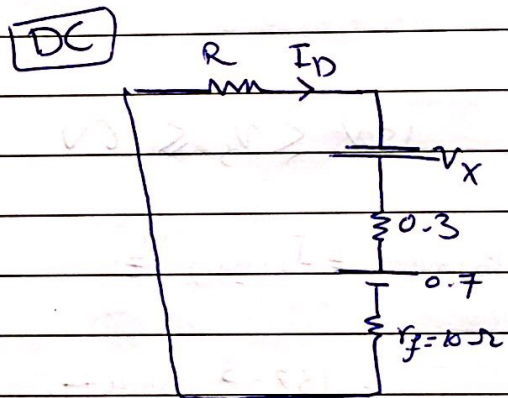 DC
R I_D
V_X
0.3
0.7
r_f = 10 Ω